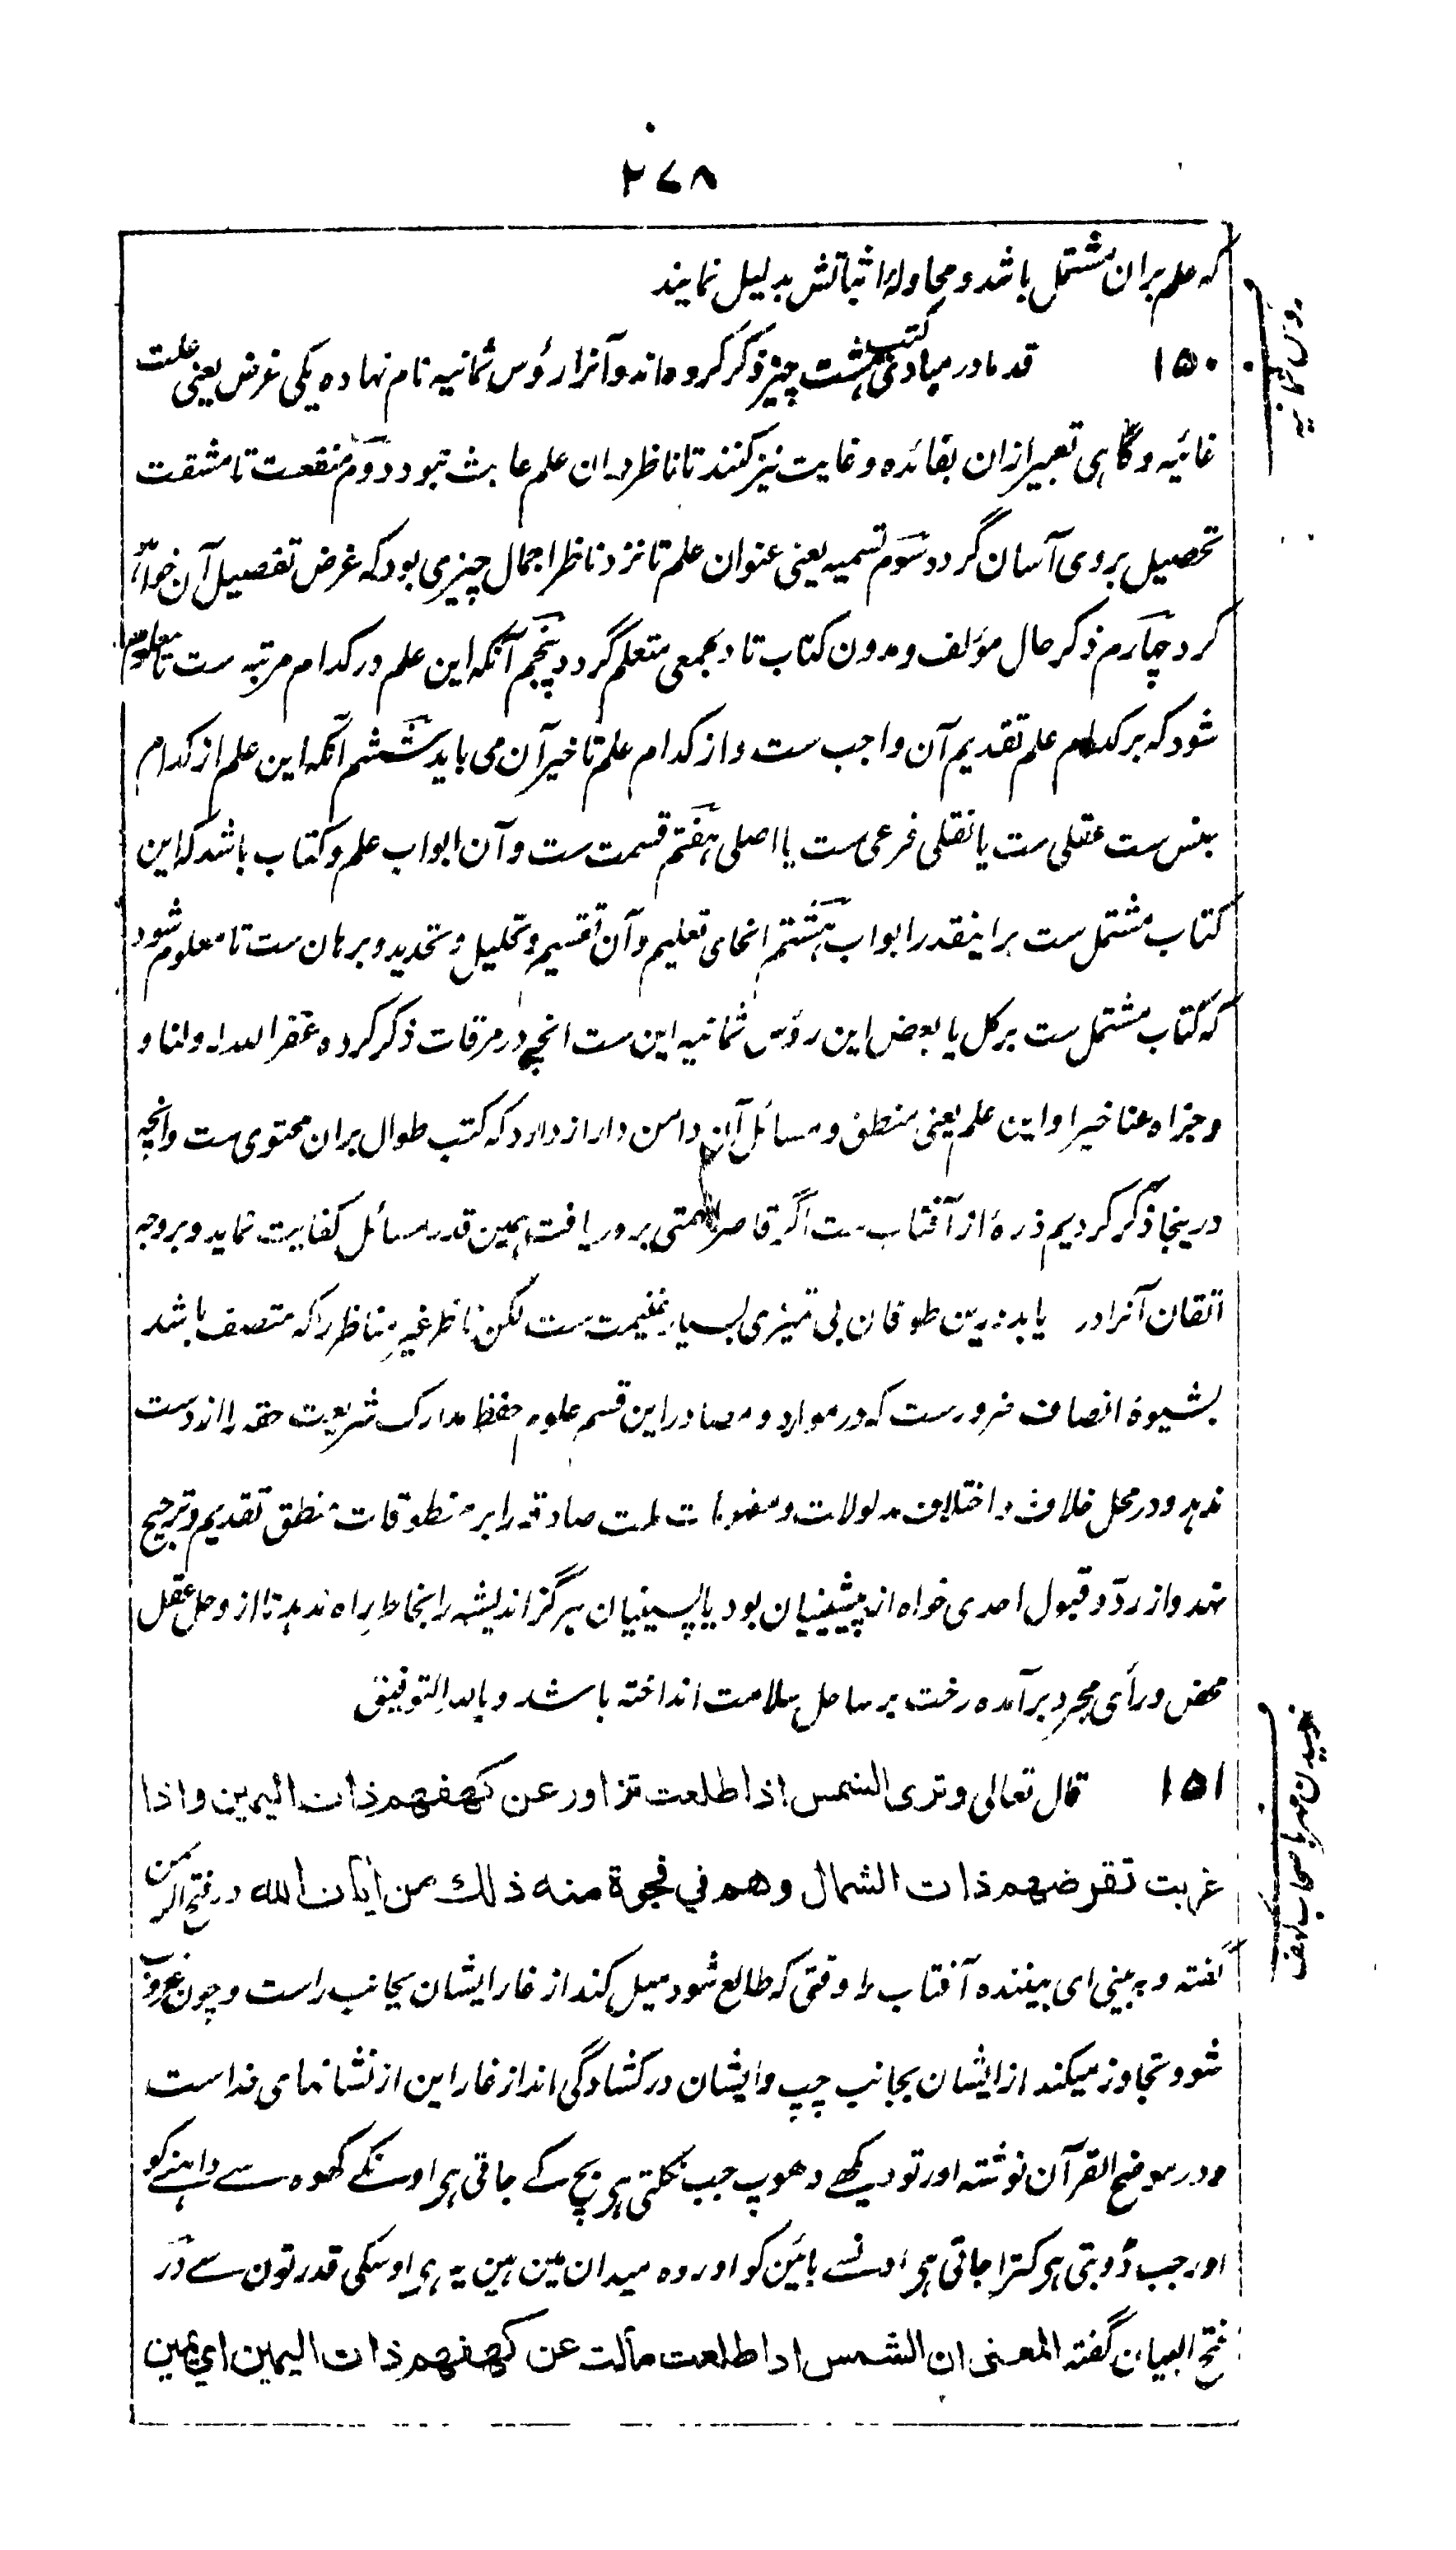 ۲۷۸
که علم بران مشتمل باشد و محاولهٔ اثباتش بدلیل نمایند
۱۵۰ قدما در مبادی کتب هشت چیز ذکر کرده اند و آنرا رؤس ثمانیه نام نهاده یکی غرض یعنی علت
غائیه و گاهی تعبیر ازان بفائده و غایت نیز کنند تا ناظر دران علم عابث نبود دوم منفعت تا مشقت
تحصیل بروی آسان گردد سوم تسمیه یعنی عنوان علم تا نزد ناظر اجمال چیزی بود که غرض تفصیل آن خواهد
کرد چهارم ذکر حال مؤلف و مدون کتاب تا دلجمعی متعلم گردد پنجم آنکه این علم در کدام مرتبه ست تا معلوم
شود که بر کدام علم تقدیم آن واجب ست و از کدام علم تاخیر آن می باید ششم آنکه این علم از کدام
جنس ست عقلی ست یا نقلی فرعی ست یا اصلی هفتم قسمت ست و آن ابواب علم و کتاب باشد که این
کتاب مشتمل ست بر اینقدر ابواب هشتم انحای تعلیم و آن تقسیم و تحلیل و تحدید و برهان ست تا معلوم شود
که کتاب مشتمل ست بر کل یا بعض این رؤس ثمانیه این ست انچه در مرقات ذکر کرده غفر الله له ولنا و
وجزاه عنا خیرا و این علم یعنی منطق و مسائل آن دامن دراز دارد که کتب طوال بران محتوی ست و انچه
درینجا ذکر کردیم ذرهٔ از آفتاب ست اگر قاصر همتی بر دریافت همین قدر مسائل کفایت نماید و بروجه
اتقان آنرا در یابد درین طوفان بی تمیزی بسیار غنیمت ست لکن ناظر غیر مناظر را که متصف باشد
بشیوهٔ انصاف ضرورست که در موارد و مصادر این قسم علوم حفظ مدارک شریعت حقه را از دست
ندهد و در محل خلاف و اختلاف مدلولات و مفهومات ملت صادقه را بر منطوقات منطق تقدیم و ترجیح
نهد و از رد و قبول احدی خواه از پیشینیان بود یا پسینیان هرگز اندیشه را بخاطر راه ندهد تا از وحل عقل
محض و رأی مجرد برآمده رخت بر ساحل سلامت انداخته باشد و بالله التوفیق
۱۵۱ قال تعالی وتری الشمس اذا طلعت تزاور عن کهفهم ذات الیمین واذا
غربت تقرضهم ذات الشمال وهم في فجوة منه ذلك من ایات الله در فتح الرحمن
گفته و به بینی ای بیننده آفتاب را وقتی که طالع شود میل کند از غار ایشان بجانب راست و چون غروب
شود تجاوز میکند از ایشان بجانب چپ و ایشان در کشادگی اند از غار این از نشانهای خداست
و در موضح القرآن نوشته اور تو دیکھے دهوپ جب نکلتی ہی بچ کے جاتی ہی اونکے کھوہ سے داہنے کو
اور جب ڈوبتی ہی کترا جاتی ہی اونسے بائین کو اور وہ میدان مین ہین یہ ہی اوسکی قدرتون سے در
فتح البیان گفته المعنی ان الشمس اذا طلعت مالت عن کهفهم ذات الیمین ای یمین
رؤس ثمانیه
رسیدن مهر باصحاب کهف